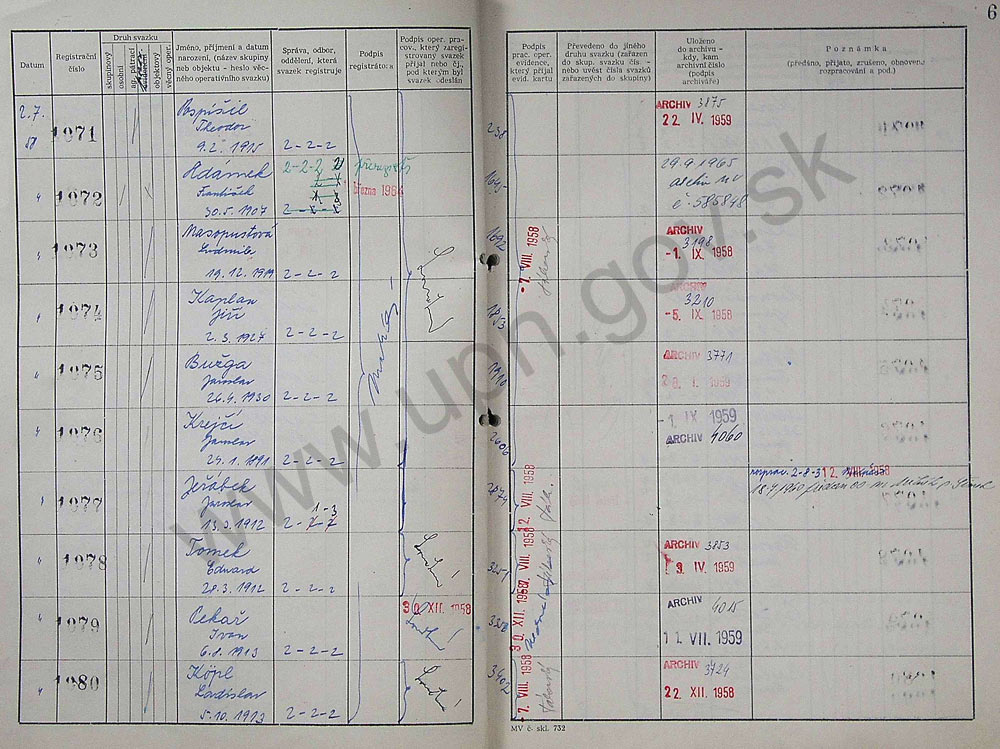 6
Datum
Registrační číslo
Druh svazku
skupinový
osobní
ag. pátrací
objektový
věcný oper.
Jméno, příjmení a datum narození, (název skupiny neb objektu - heslo věcného operativního svazku)
Správa, odbor, oddělení, která svazek registruje
Podpis registrátora
Podpis oper. pracov., který zaregistrovaný svazek přijal nebo čj., pod kterým byl svazek odeslán
Podpis prac. oper. evidence, který přijal evid. kartu
Převedeno do jiného druhu svazku (zařazen do skup. svazku čís - nebo uvést čísla svazků zařazených do skupiny)
Uloženo do archivu - kdy, kam archivní číslo (podpis archiváře)
Poznámka
(předáno, přijato, zrušeno, obnoveno rozpracování a pod.)
2.7.
58
1971
Pospíšil
Theodor
9.2. 1915
2-2-2
238
ARCHIV 3875
22 IV. 1959
1972
Adámek
František
30.5. 1907
2-2-2
března 1964
29.9.1965
Archiv MV
č. 585848
1973
Masopustová
Ludmila
19.12. 1919
2-2-2
1692
-7. VIII. 1958
ARCHIV
3198
-1. IX 1958
1974
Kaplan
Jiří
2.3. 1927
2-2-2
1853
ARCHIV
3210
-5. IX 1958
1975
Buřga
Jaroslav
26.4. 1930
2-2-2
1910
ARCHIV 3771
1959
1976
Krejčí
Jaroslav
24.1. 1891
2-2-2
2606
-1 IX 1959
ARCHIV 4060
1977
Jeřábek
Jaroslav
1-3
13.3. 1912
2-2-2
2874
12. VIII. 1958
rozprac. 2-8-3
12. VIII. 1958
1978
Tomek
Eduard
28.3. 1912
2-2-2
3251
VIII. 1958
ARCHIV 3853
9. IV. 1959
1979
Pekař
Ivan
6.8. 1913
2-2-2
30. XII. 1958
30. XII. 1958
ARCHIV 4015
11. VII. 1959
1980
Köpl
Ladislav
5.10. 1913
2-2-2
3402
-7. VIII. 1958
ARCHIV 3424
22. XII. 1958
MV č. skl. 732
www.upn.gov.sk